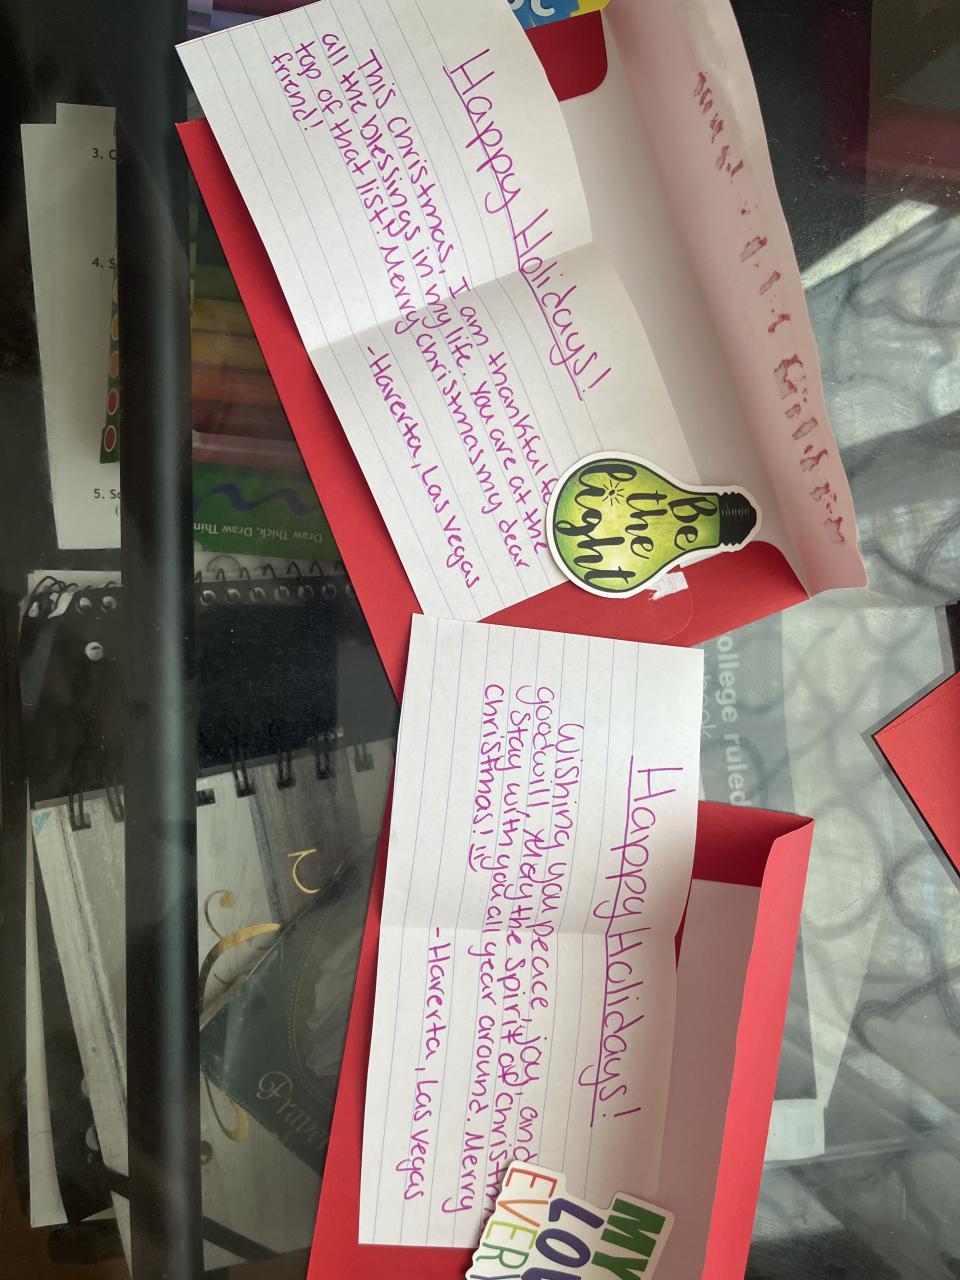 Happy Holidays!
This christmas, I am thankful for
all the blessings in my life. You are at the
top of that list! Merry christmas my dear
friend!
-Haverta, Las Vegas
Be
the
Light
Happy Holidays!
Wishing you peace, joy, and
goodwill. May the spirit of christmas
stay with you all year around. Merry
christmas! :)
-Haverta, Las Vegas
MY
EVERY
ollege ruled
book
3.
4.
5.
Draw Thick, Draw Thin
Prayer